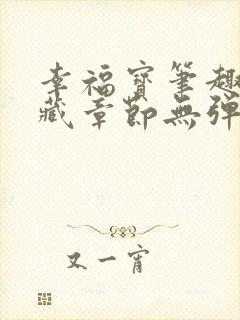 幸福寶筆趣
藏章節無彈
又一宵